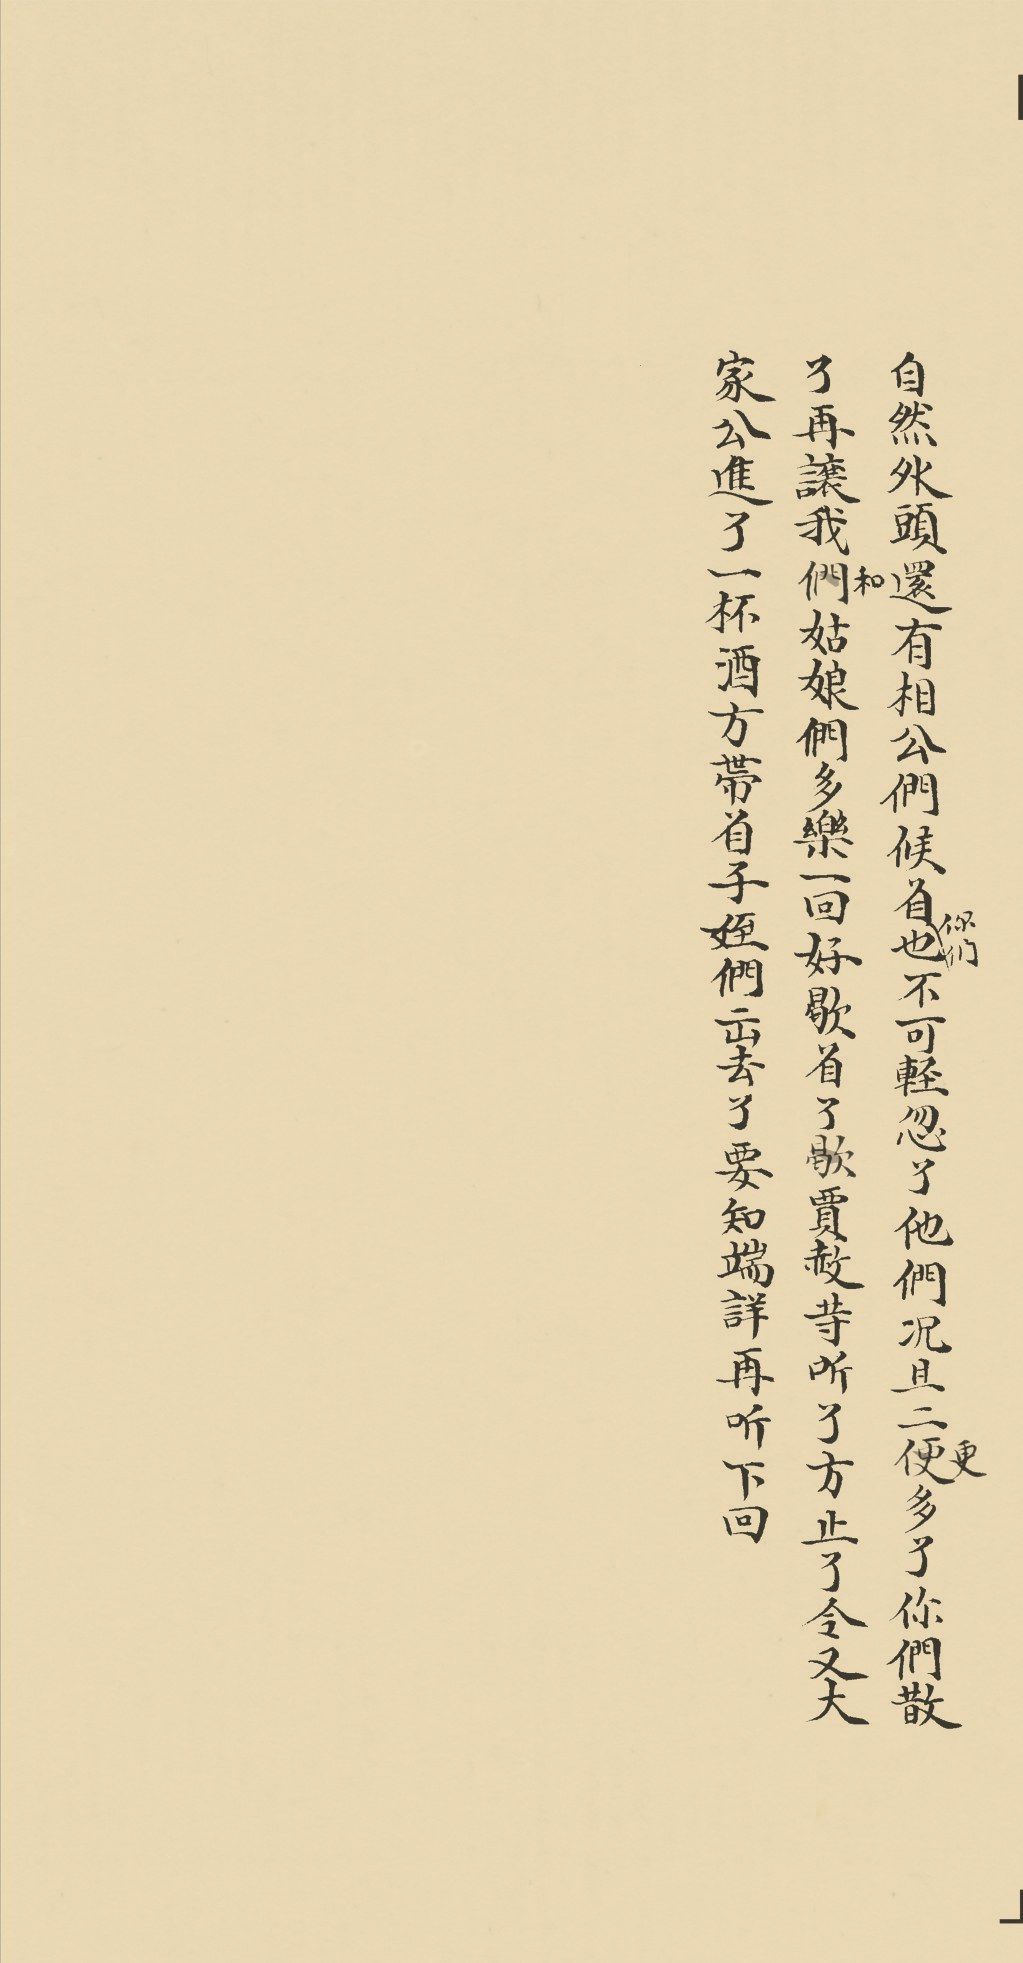 自然外頭還有相公們候着你们也不可輕忽了他們况且二便更多了你們散
了再讓我們和姑娘們多樂一回好歇着了歇賈赦䓁听了方止了令又大
家公進了一杯酒方帶着子姪們出去了要知端詳再听下回